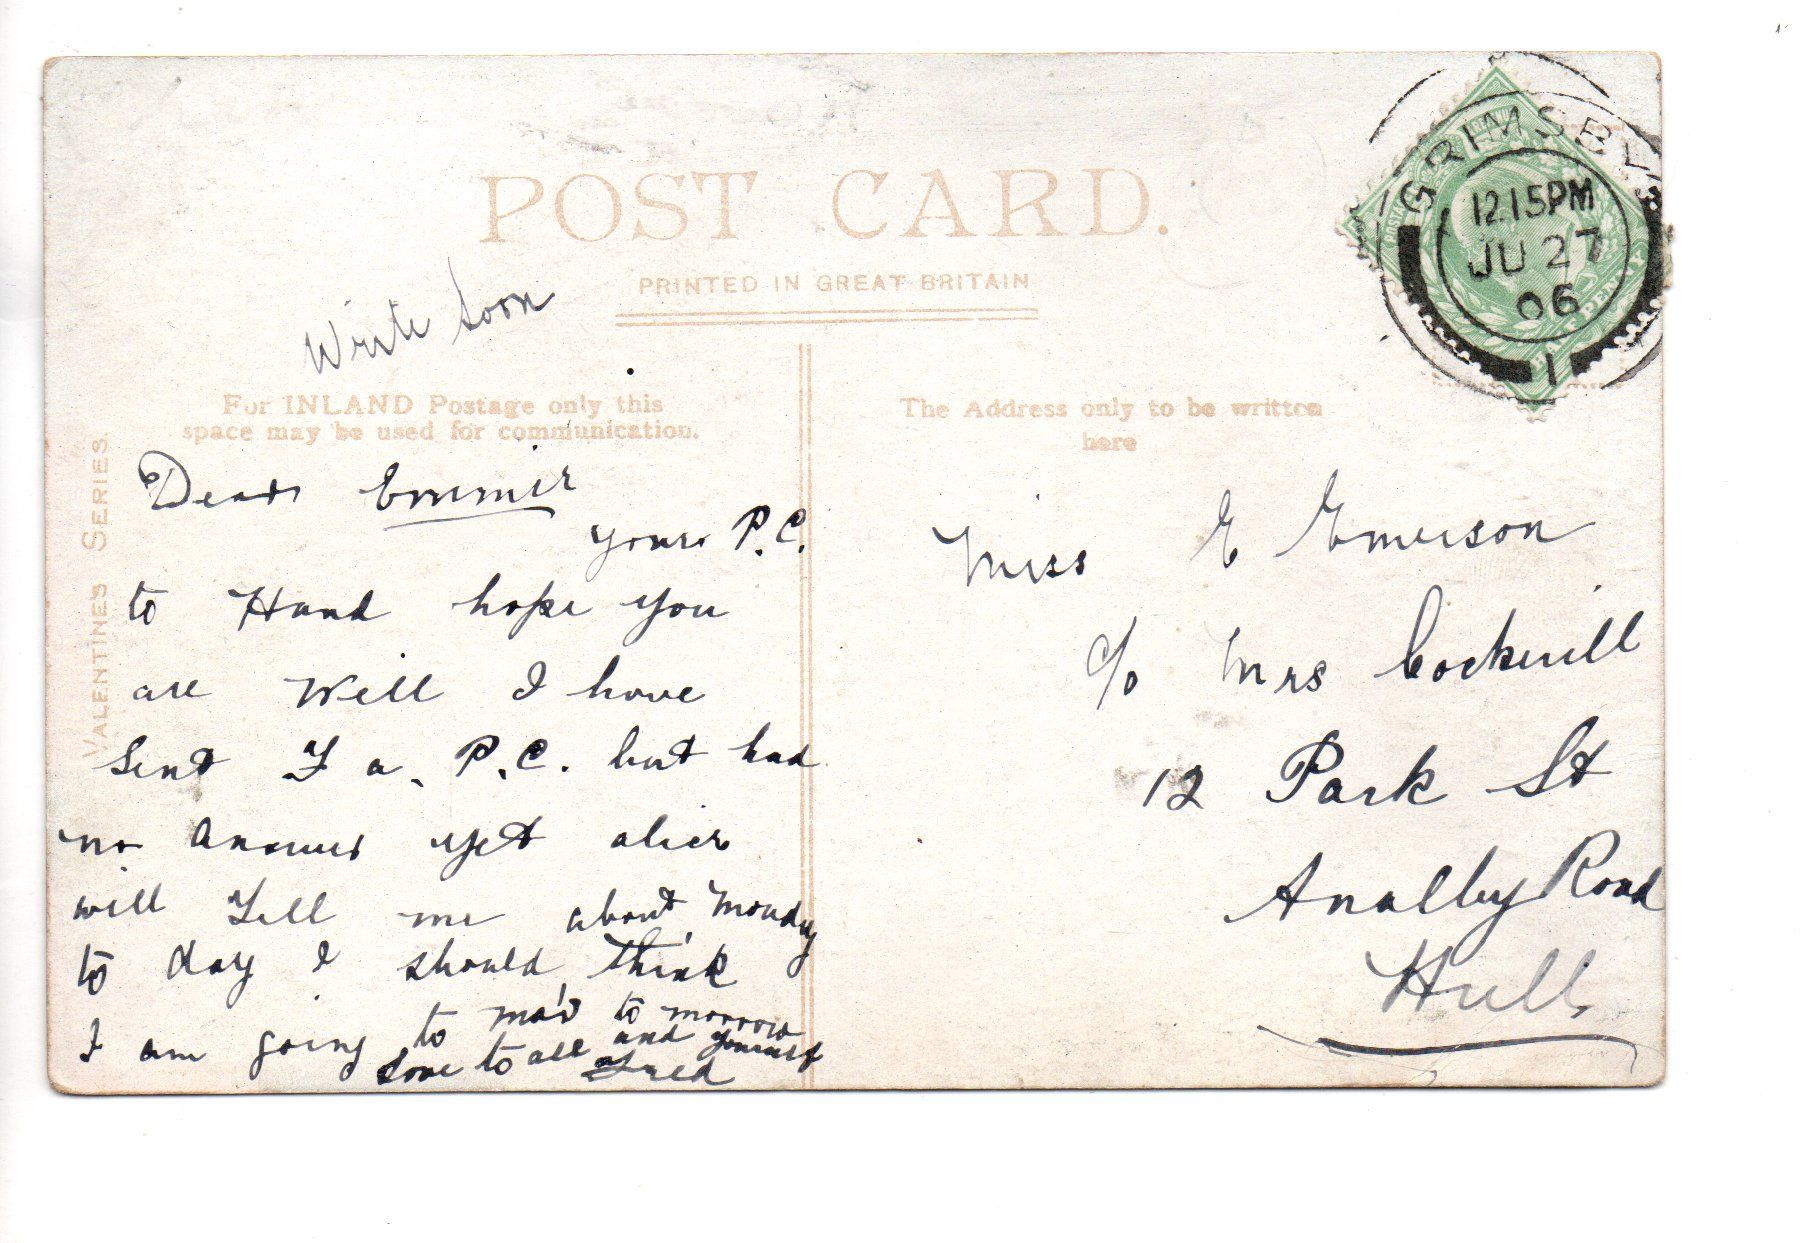 POST CARD.
PRINTED IN GREAT BRITAIN
GRIMSBY
12.15PM
JU 27
06
1
Write Soon
For INLAND Postage only this
space may be used for communication.
The Address only to be written
here
VALENTINES SERIES.
Dear Emmie
yours P.C.
to Hand hope you
are Well I have
Sent F a. P.C. but had
no answer yet alice
will Tell me about Monday
to day I should think
I am going to ma's to morrow
Love to all and yourself
Fred
Miss E Emerson
c/o Mrs Cockerill
12 Park St
Analby Road
Hull